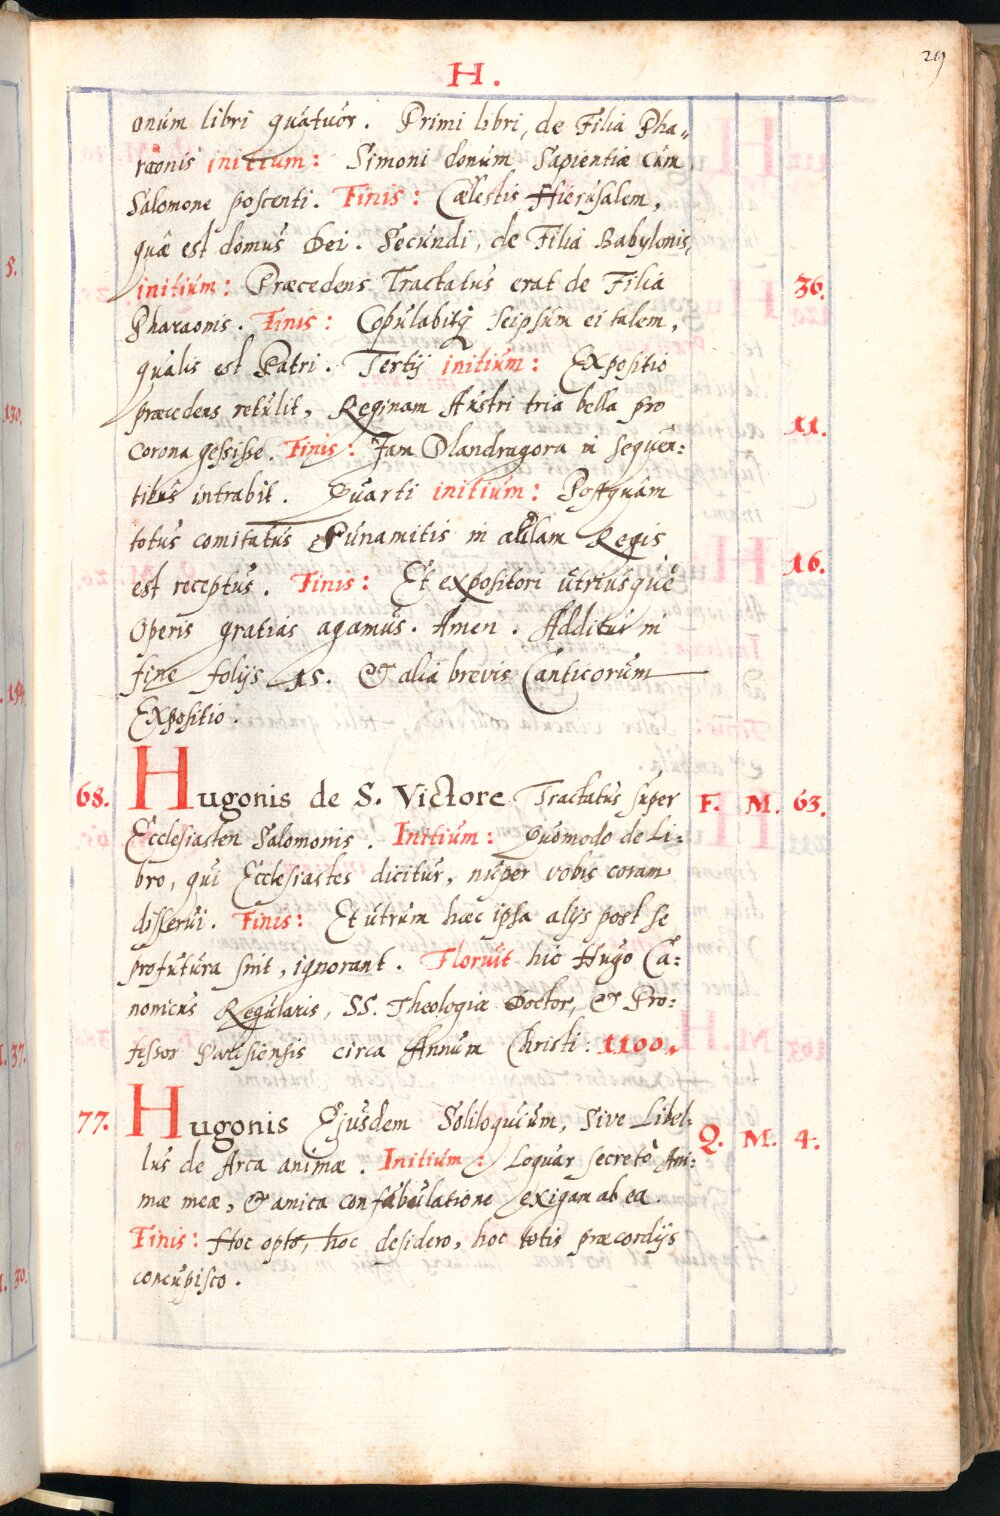 29
H.
onum libri quatuor. Primi libri, de Filia Pha„
raonis initium: Simoni donum Sapientiæ cum
Salomone poscenti. Finis: Cælestis Hierusalem,
quæ est domus Dei. Secundi, de Filia Babylonis,
initium: Præcedens Tractatus erat de Filia 36.
Pharaonis. Finis: Copulabitq; seipsum ei talem,
qualis est Patri. Tertij initium: Expositio
præcedens retulit, Reginam Austri tria bella pro 11.
corona gessisse. Finis: Jam Mandragora in sequen:
tibus intrabit. Quarti initium: Postquam
totus comitatus Sunamitis in aulam Regis 16.
est receptus. Finis: Et expositori utriusque
Operis gratias agamus. Amen. Additur in
fine folijs 15. & alia brevis Canticorum
Expositio.
68. Hugonis de S. Victore Tractatus super F. M. 63.
Ecclesiasten Salomonis. Initium: Quomodo de Li:
bro, qui Ecclesiastes dicitur, nuper vobis coram
disserui. Finis: Et utrum hæc ipsa alijs post se
profutura sint, ignorant. Floruit hic Hugo Ca:
nonicus Regularis, SS. Theologiæ Doctor, & Pro:
fessor Parisiensis circa Annum Christi: 1100.
77. Hugonis Ejusdem Soliloquium, sive Libel: Q. M. 4.
lus de Arca animæ. Initium: Loquar secretò Ani:
mæ meæ, & amica confabulatione exigam ab ea.
Finis: Hoc opto, hoc desidero, hoc totis præcordijs
concupisco.